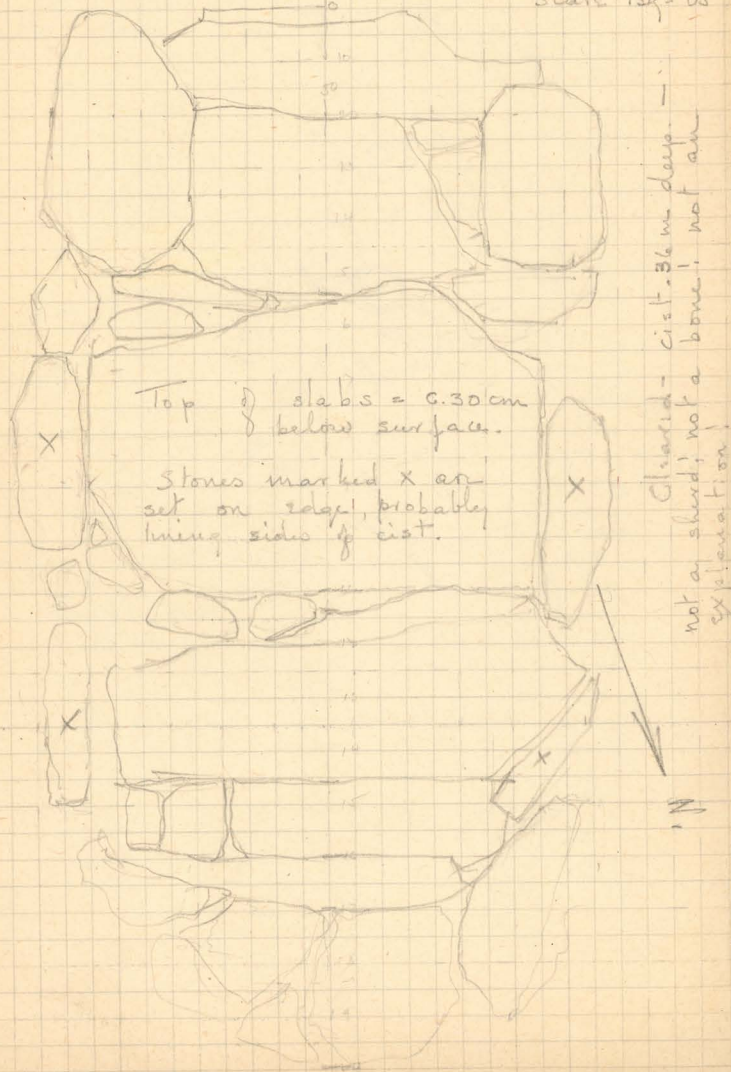 Top of slabs = 0.30 cm
below surface.
Stones marked X are
set on edge, probably
lining sides of cist.
X
X
X
X
N.
Cleared - cist .36 m deep. —
not a sherd, not a bone, not an
explanation!